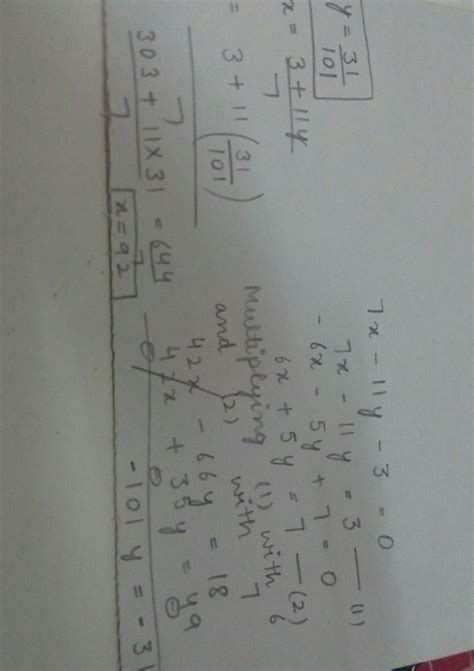 7x - 11y - 3 = 0
7x - 11y = 3 — (1)
- 6x - 5y + 7 = 0
6x + 5y = 7 — (2)
Multiplying (1) with 6
and (2) with 7
42x - 66y = 18
42x + 35y = 49
⊖ ⊖ ⊖
-101 y = -31
y = 31/101
x = 3 + 11y
7
= 3 + 11 (31/101)
7
303 + 11 × 31 = 644
7 7
x = 92